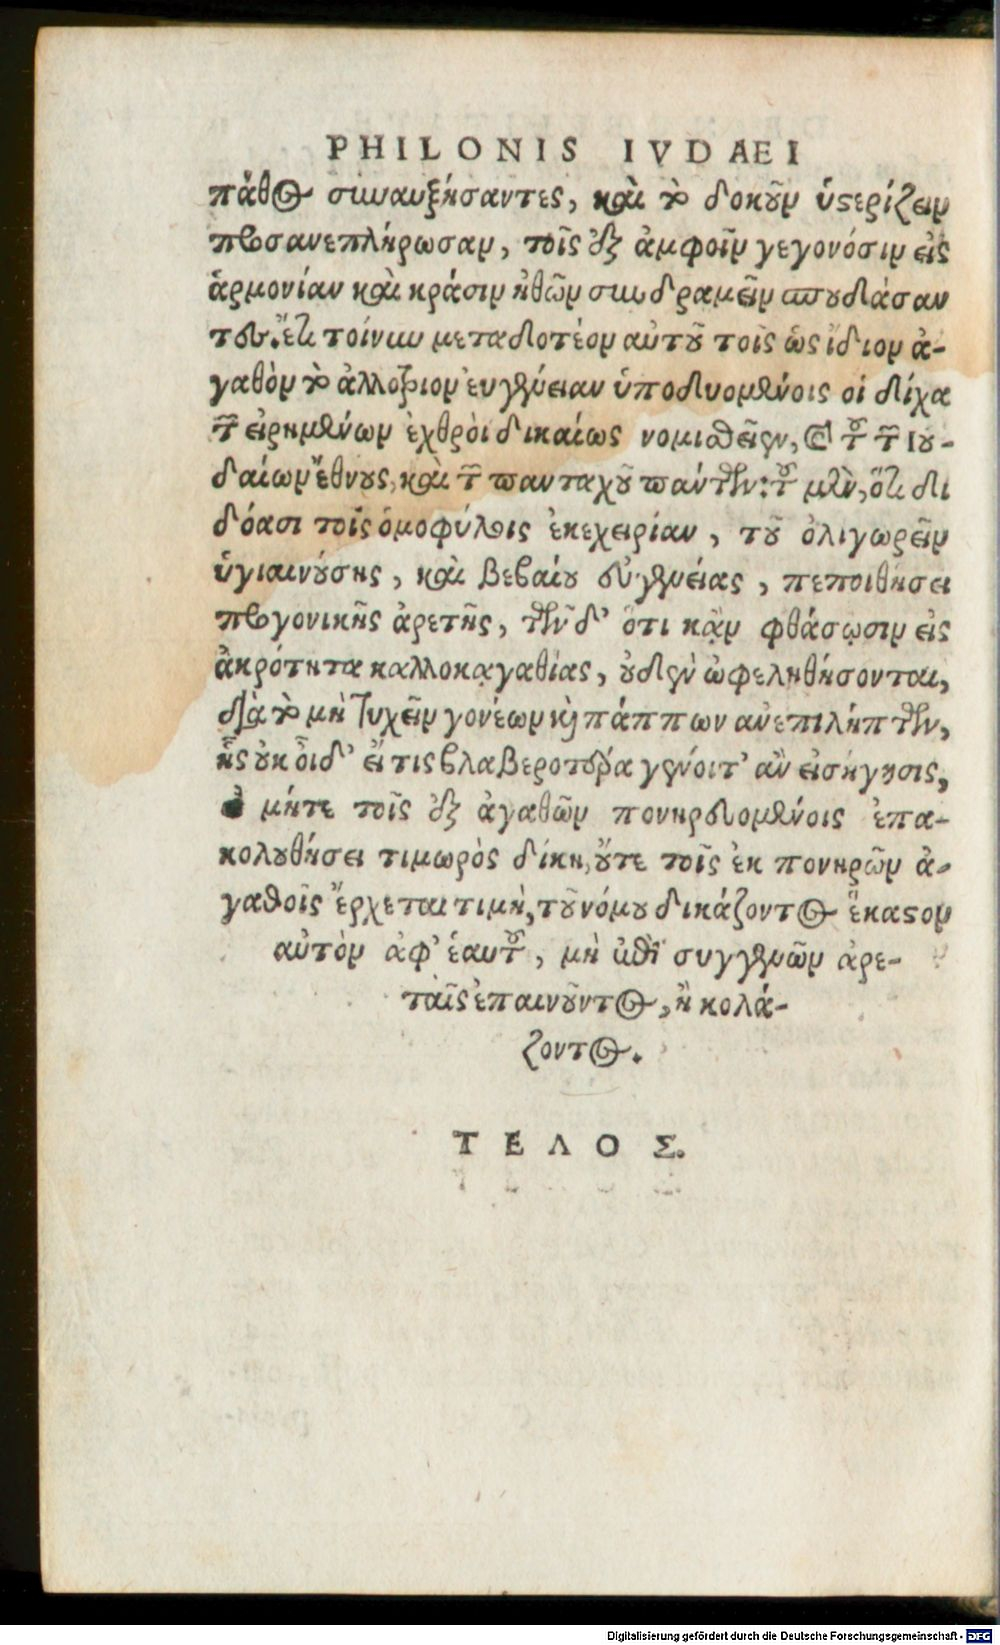 PHILONIS IVDAEI
πάθος συναυξήσαντες, καὶ τὸ δοκοῦν ὑστερίζειν
προσανεπλήρωσαν, τοῖς ἐξ ἀμφοῖν γεγονόσιν εἰς
ἁρμονίαν καὶ κράσιν ἠθῶν συνδραμεῖν σπουδάσαν
τες. ἔτι τοίνυν μεταδοτέον αὐτοῦ τοῖς ὡς ἴδιον ἀ-
γαθὸν τὸ ἀλλότριον εὐγένειαν ὑποδυομένοις οἱ δίχα
τῶν εἰρημένων ἐχθροὶ δικαίως νομισθεῖεν, καὶ τοῦ τῶν Ιου-
δαίων ἔθνους, καὶ τῶν πανταχοῦ πάντων: τοῦ μὲν, ὅτι δι
δόασι τοῖς ὁμοφύλοις ἐκεχειρίαν, τοῦ ὀλιγωρεῖν
ὑγιαινούσης, καὶ βεβαίου συγγενείας, πεποιθήσει
προγονικῆς ἀρετῆς, τῶν δ' ὅτι κἂν φθάσωσιν εἰς
ἀκρότητα καλλοκαγαθίας, οὐδὲν ὠφεληθήσονται,
διὰ τὸ μὴ τυχεῖν γονέων καὶ πάππων ἀνεπιλήπτων,
ἧς οὐκ οἶδ' εἴ τις βλαβερωτέρα γένοιτ' ἂν εἰσήγησις,
εἰ μήτε τοῖς ἐξ ἀγαθῶν πονηρευομένοις ἐπα-
κολουθήσει τιμωρὸς δίκη, οὔτε τοῖς ἐκ πονηρῶν ἀ-
γαθοῖς ἔρχεται τιμὴ, τοῦ νόμου δικάζοντος ἕκαστον
αὐτὸν ἀφ' ἑαυτοῦ, μὴ ἐπὶ συγγενῶν ἀρε-
ταῖς ἐπαινοῦντος, ἢ κολά-
ζοντος.
ΤΕΛΟΣ.
Digitalisierung gefördert durch die Deutsche Forschungsgemeinschaft - DFG